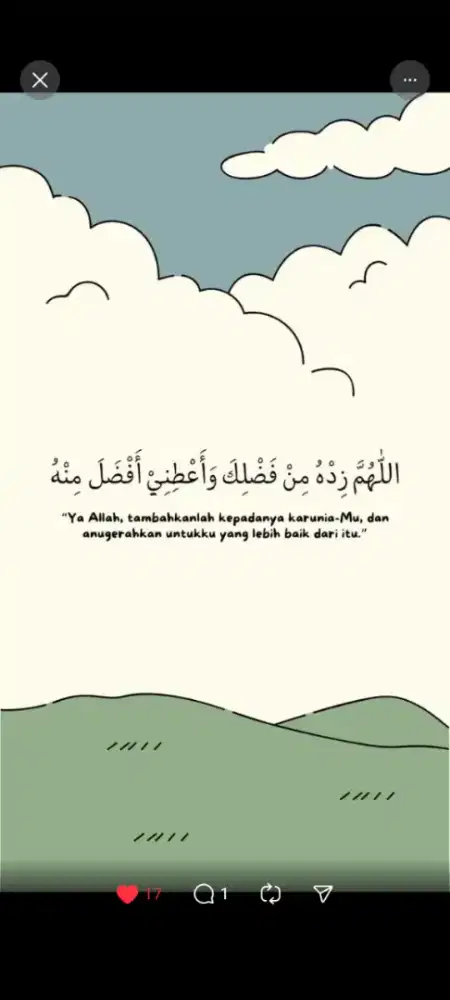 اللّٰهُمَّ زِدْهُ مِنْ فَضْلِكَ وَأَعْطِنِيْ أَفْضَلَ مِنْهُ
"Ya Allah, tambahkanlah kepadanya karunia-Mu, dan
anugerahkan untukku yang lebih baik dari itu."
17 1